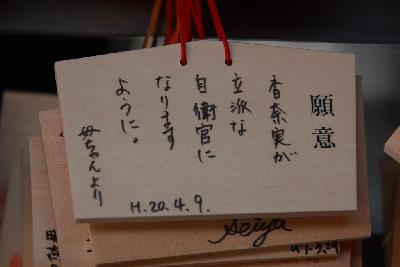 願意
香奈実が
立派な
自衛官に
なります
ように。
母ちゃんより
H.20.4.9.
Seiya